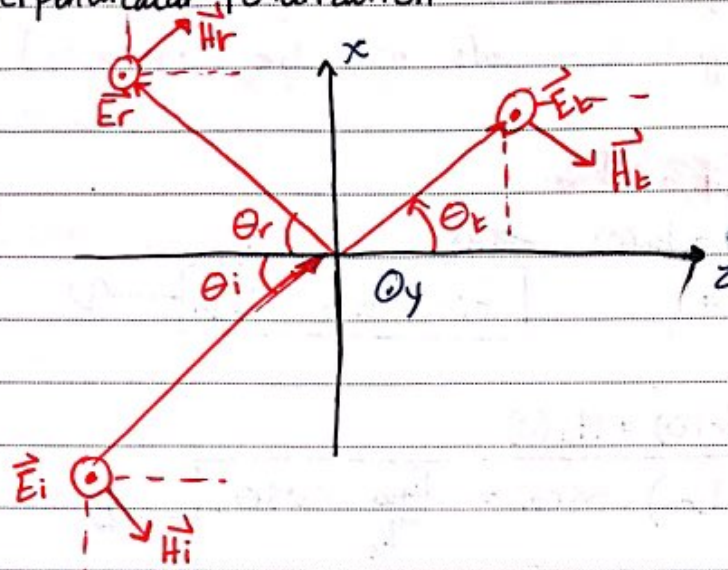 H⃗r
x
E⃗r
E⃗t
H⃗t
θr
θt
θi
⊙y
z
E⃗i
H⃗i